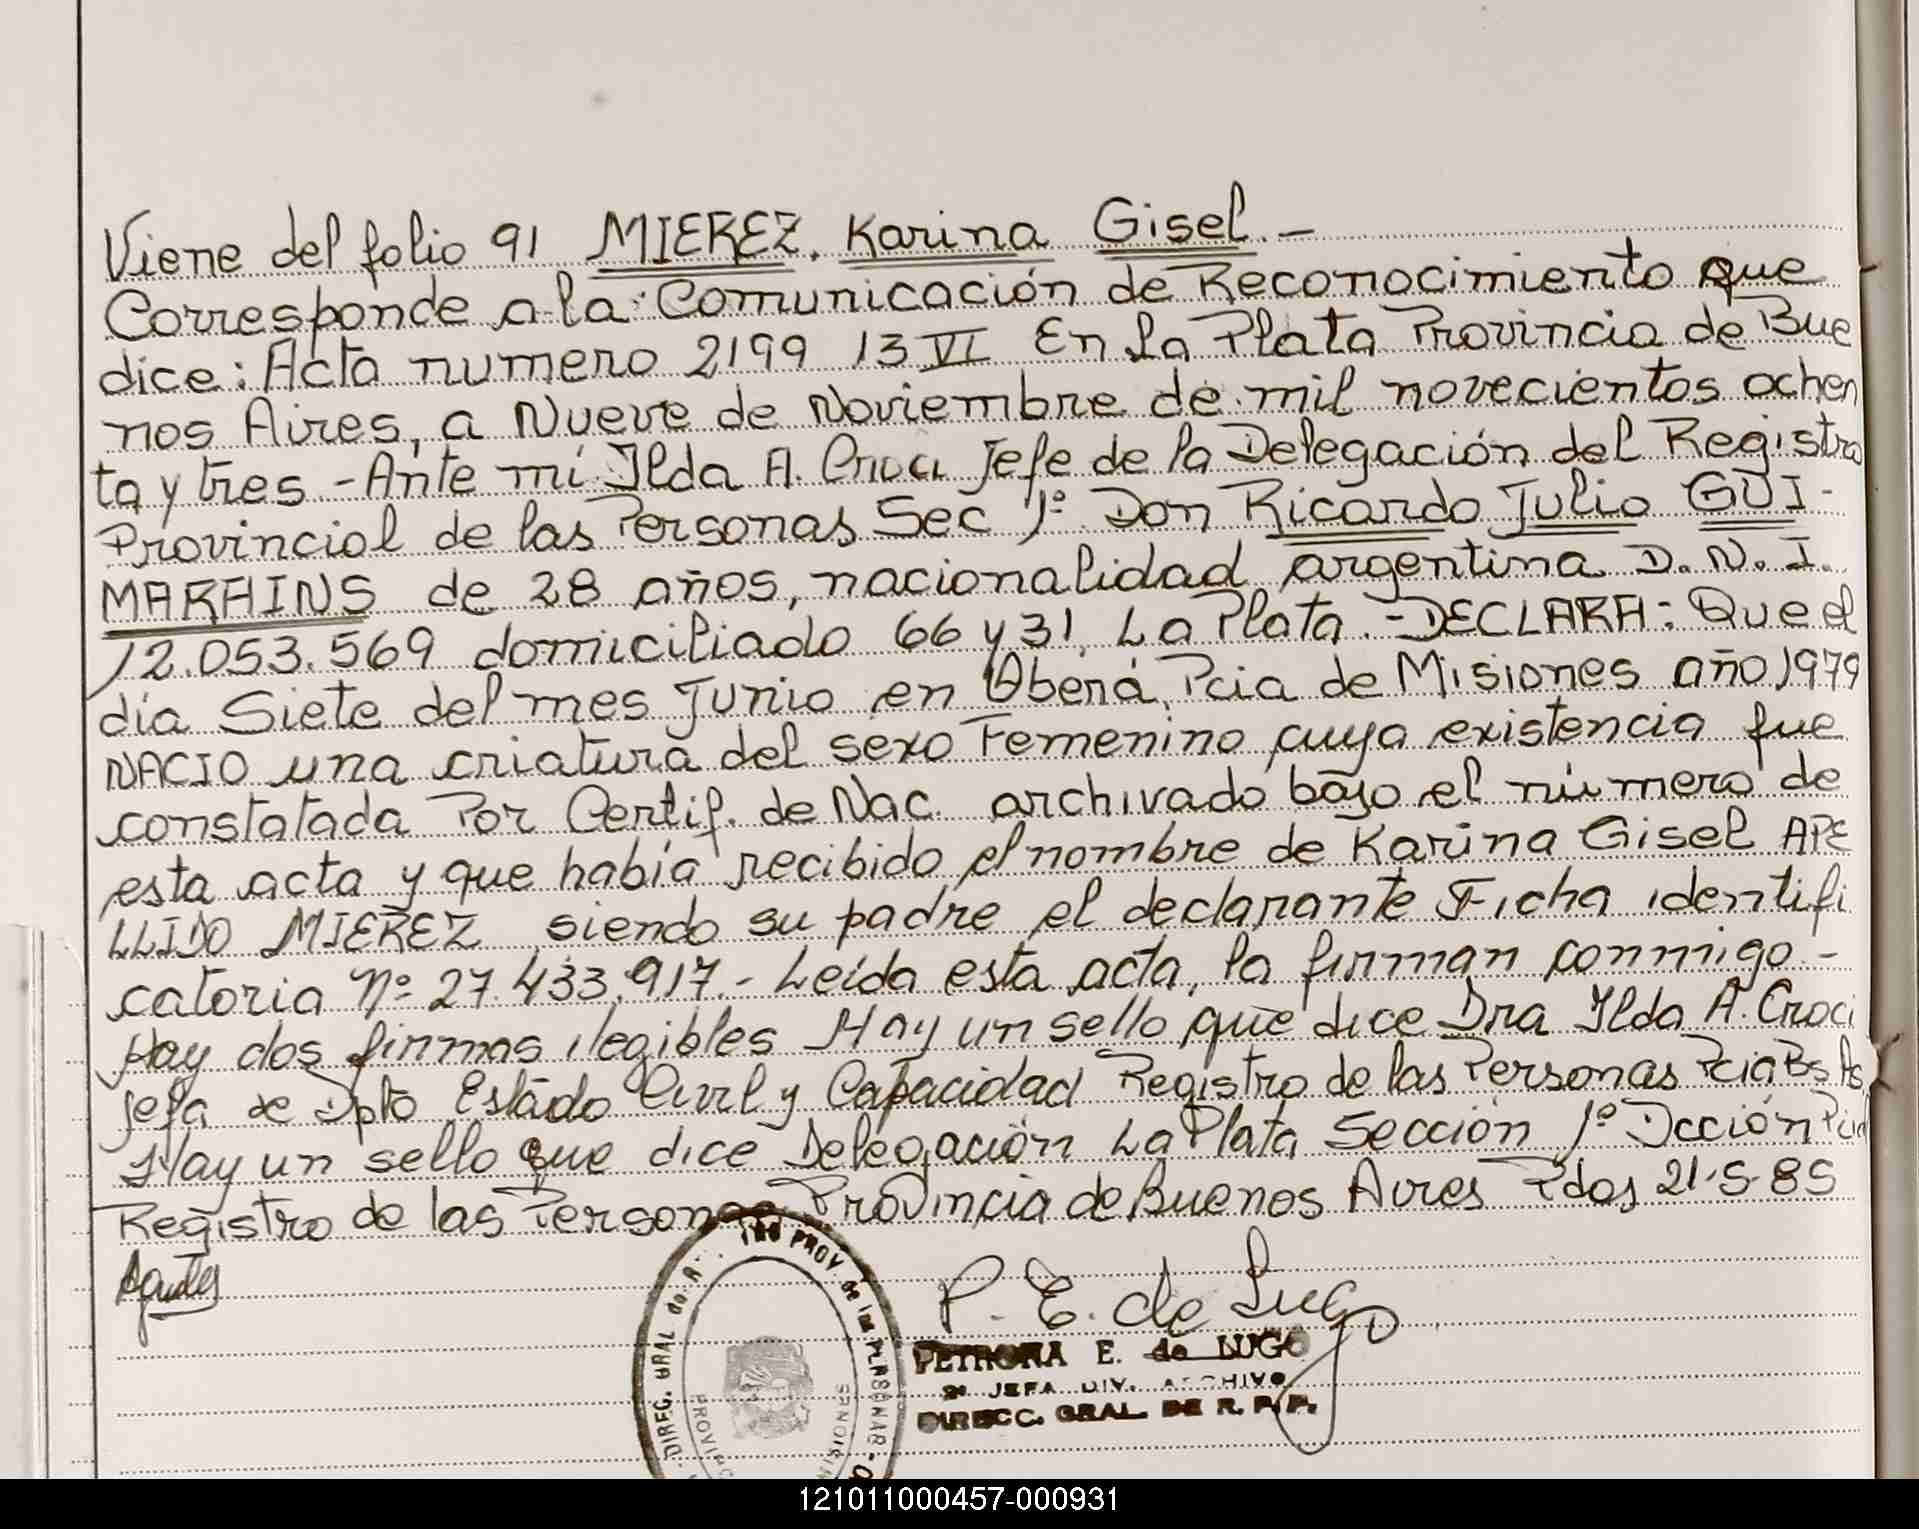 Viene del folio 91 MIEREZ. Karina Gisel. -
Corresponde a la Comunicación de Reconocimiento que
dice: Acta numero 2199 13 VI En La Plata Provincia de Bue
nos Aires, a Nueve de Noviembre de mil novecientos ochen
ta y tres - Ante mi Ilda A. Croci Jefe de la Delegación del Registro
Provincial de las Personas Sec 1º Don Ricardo Julio GUI-
MARAINS de 28 años, nacionalidad argentina D. N. I.
12.053.569 domiciliado 66 y 31. La Plata. - DECLARA: Que el
día Siete del mes Junio en Oberá, Pcia de Misiones año 1979
NACIO una criatura del sexo Femenino cuya existencia fue
constatada Por Certif. de Nac. archivado bajo el número de
esta acta y que había recibido el nombre de Karina Gisel APE
LLIDO MIEREZ siendo su padre el declarante Ficha identifi
catoria Nº 27.433.917.- Leída esta acta, la firman conmigo -
Hay dos firmas ilegibles Hay un sello que dice Dra Ilda A. Croci
Jefa de Dpto Estado Civil y Capacidad Registro de las Personas Pcia Bs As
Hay un sello que dice Delegación La Plata Sección 1º Dcción Pcial
Registro de las Personas Provincia de Buenos Aires Pdos 21-5-85
P. E. de Lugo
PETRONA E. de LUGO
2ª JEFA DIV. ARCHIVO
DIRECC. GRAL. DE R. P. P.
DIREC. GRAL de PROV de las PERSONAS
121011000457-000931